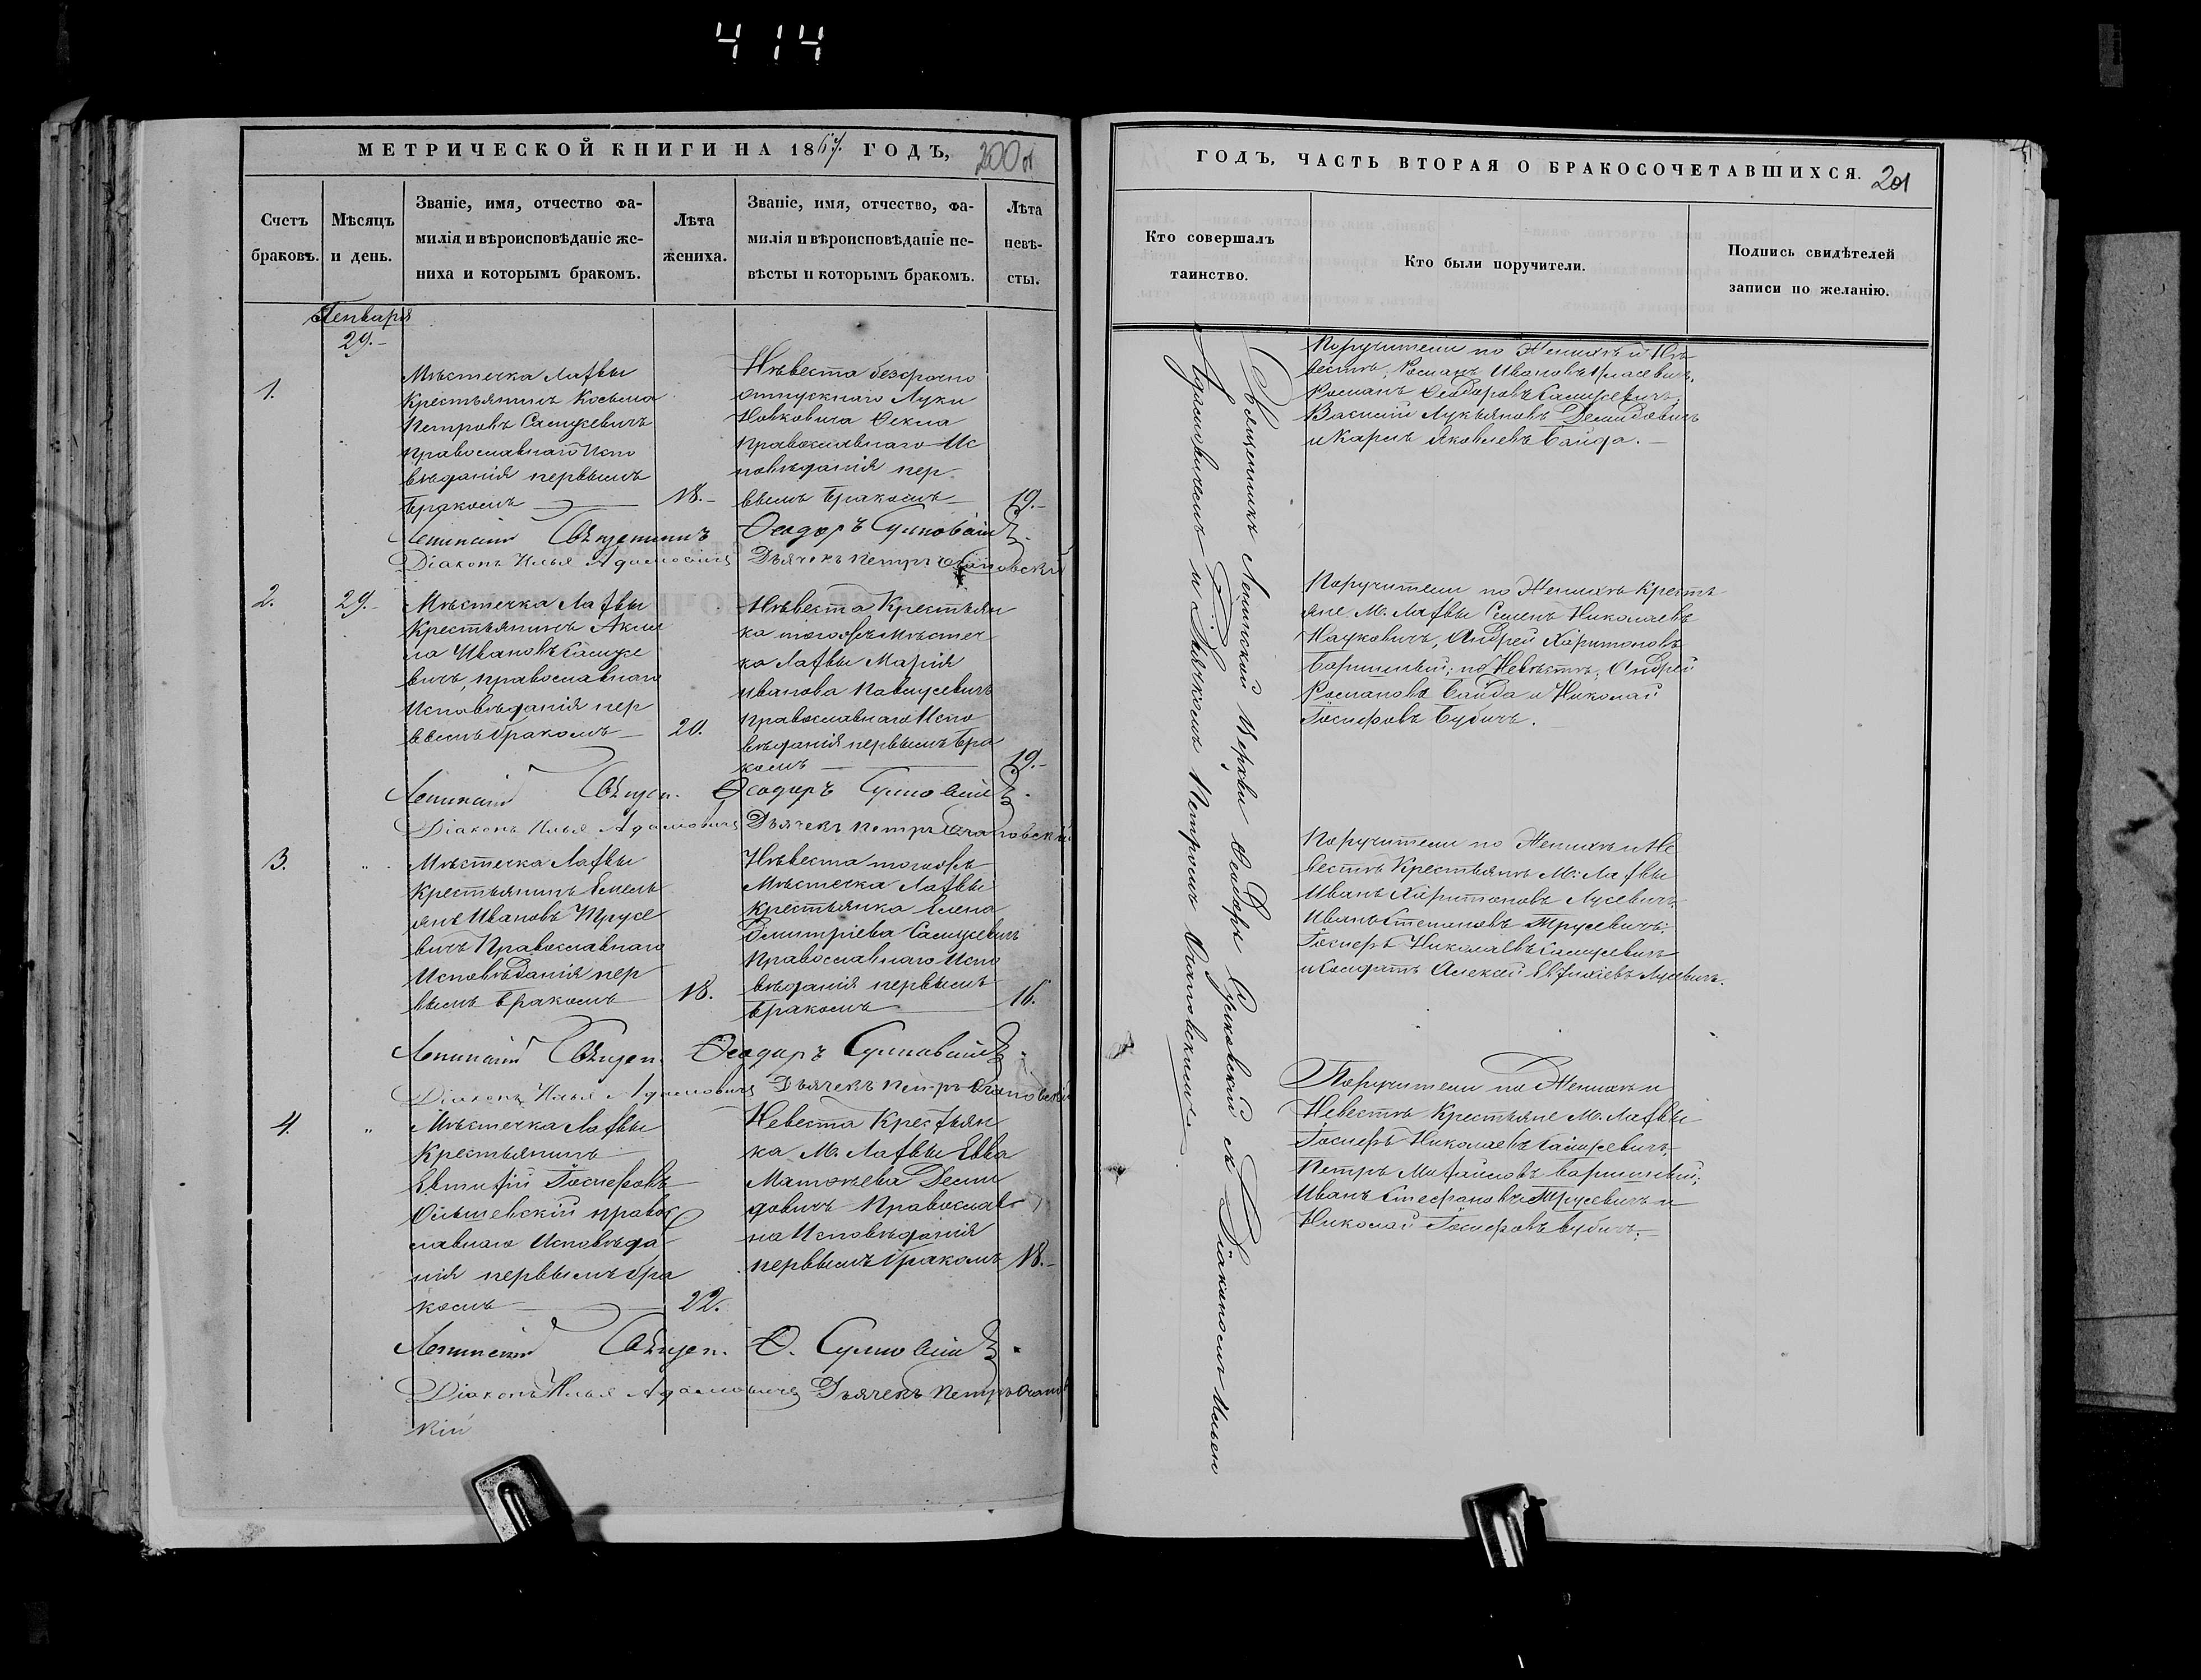 414
МЕТРИЧЕСКОЙ КНИГИ НА 1867. ГОДЪ,
200 об
Счетъ браковъ.
Мѣсяцъ и день.
Званіе, имя, отчество фа-
милія и вѣроисповѣданіе же-
ниха и которымъ бракомъ.
Лѣта
жениха.
Званіе, имя, отчество, фа-
милія и вѣроисповѣданіе не-
вѣсты и которымъ бракомъ.
Лѣта
невѣ-
сты.
Генваря
29.-
1.
Мѣстечка Лахвы
Крестьянинъ Косьма
Петровъ Самусевичъ
православнаго Испо
вѣданія первымъ
бракомъ
18.-
Нѣвеста безсрочно
отпускнаго Луки
Новковича Фекла
православнаго Ис
повѣданія пер
вымъ бракомъ
19.-
Священникъ Ѳеодоръ
Діаконъ Илья Адамовичъ Дьячекъ Петръ
2.
29.-
Мѣстечка Лахвы
Крестьянинъ Аким
Ивановъ Самусе
вичъ, православнаго
Исповѣданія пер
вымъ бракомъ
20.
Нѣвеста Крестьян
ка тогожъ Мѣстеч
ка Лахвы Марія
Иванова
православнаго Испо
вѣданія первымъ бра
комъ
19.-
Священ. Ѳеодоръ
Діаконъ Илья Адамовичъ Дьячекъ Петръ
3.
Мѣстечка Лахвы
Крестьянинъ Емель
янъ Ивановъ Трусе
вичъ Православнаго
Исповѣданія пер
вымъ бракомъ
18.
Нѣвеста тогожъ
Мѣстечка Лахвы
крестьянка Елена
Димитріева Самусевичъ
Православнаго Испо
вѣданія первымъ
бракомъ
16.
Священ. Ѳеодоръ
Діаконъ Илья Адамовичъ Дьячекъ Петръ
4.
Мѣстечка Лахвы
Крестьянинъ
Евтифій Іосифовъ
Ольшевскій право
славнаго Исповѣда
нія первымъ бра
комъ
22.
Невеста Крестьян
ка М. Лахвы Евва
Матвѣева Деми
довичъ Православ
на Исповѣданія
первымъ бракомъ
18.-
Священ. Ѳ.
Діаконъ Илья Адамовичъ Дьячекъ Петръ
кій
ГОДЪ, ЧАСТЬ ВТОРАЯ О БРАКОСОЧЕТАВШИХСЯ.
201
Кто совершалъ
таинство.
Кто были поручители.
Подпись свидѣтелей
записи по желанію.
Священникъ Церкви Ѳеодоръ съ Діакономъ Ильею
Адамовичемъ и Дьячкомъ Петромъ
Поручители по Женихѣ и Нѣ
вестѣ, Романъ Ивановъ
Романъ Ѳеодоровъ Самусевичъ,
Василій Лукьяновъ Демидовичъ
и Карпъ Яковлевъ Байда.
Поручители по Женихѣ Кресть
яне М. Лахвы Семенъ Николаевъ
Андрей Харитоновъ
по Невѣстѣ, Андрей
Романовъ Байда и Николай
Іосифовъ Бубичъ.
Поручители по Женихѣ и Не
вестѣ Крестьянъ М: Лахвы
Иванъ Харитоновъ Лусевичъ
Иванъ Степановъ Трусевичъ,
Іосифъ Николаевъ Самусевичъ
и Солдатъ Алексей Лусевичъ.
Поручители по Женихѣ и
Невестѣ Крестьяне М. Лахвы
Іосифъ Николаевъ Самусевичъ,
Петръ
Иванъ Стефановъ Трусевичъ и
Николай Іосифовъ Бубичъ.